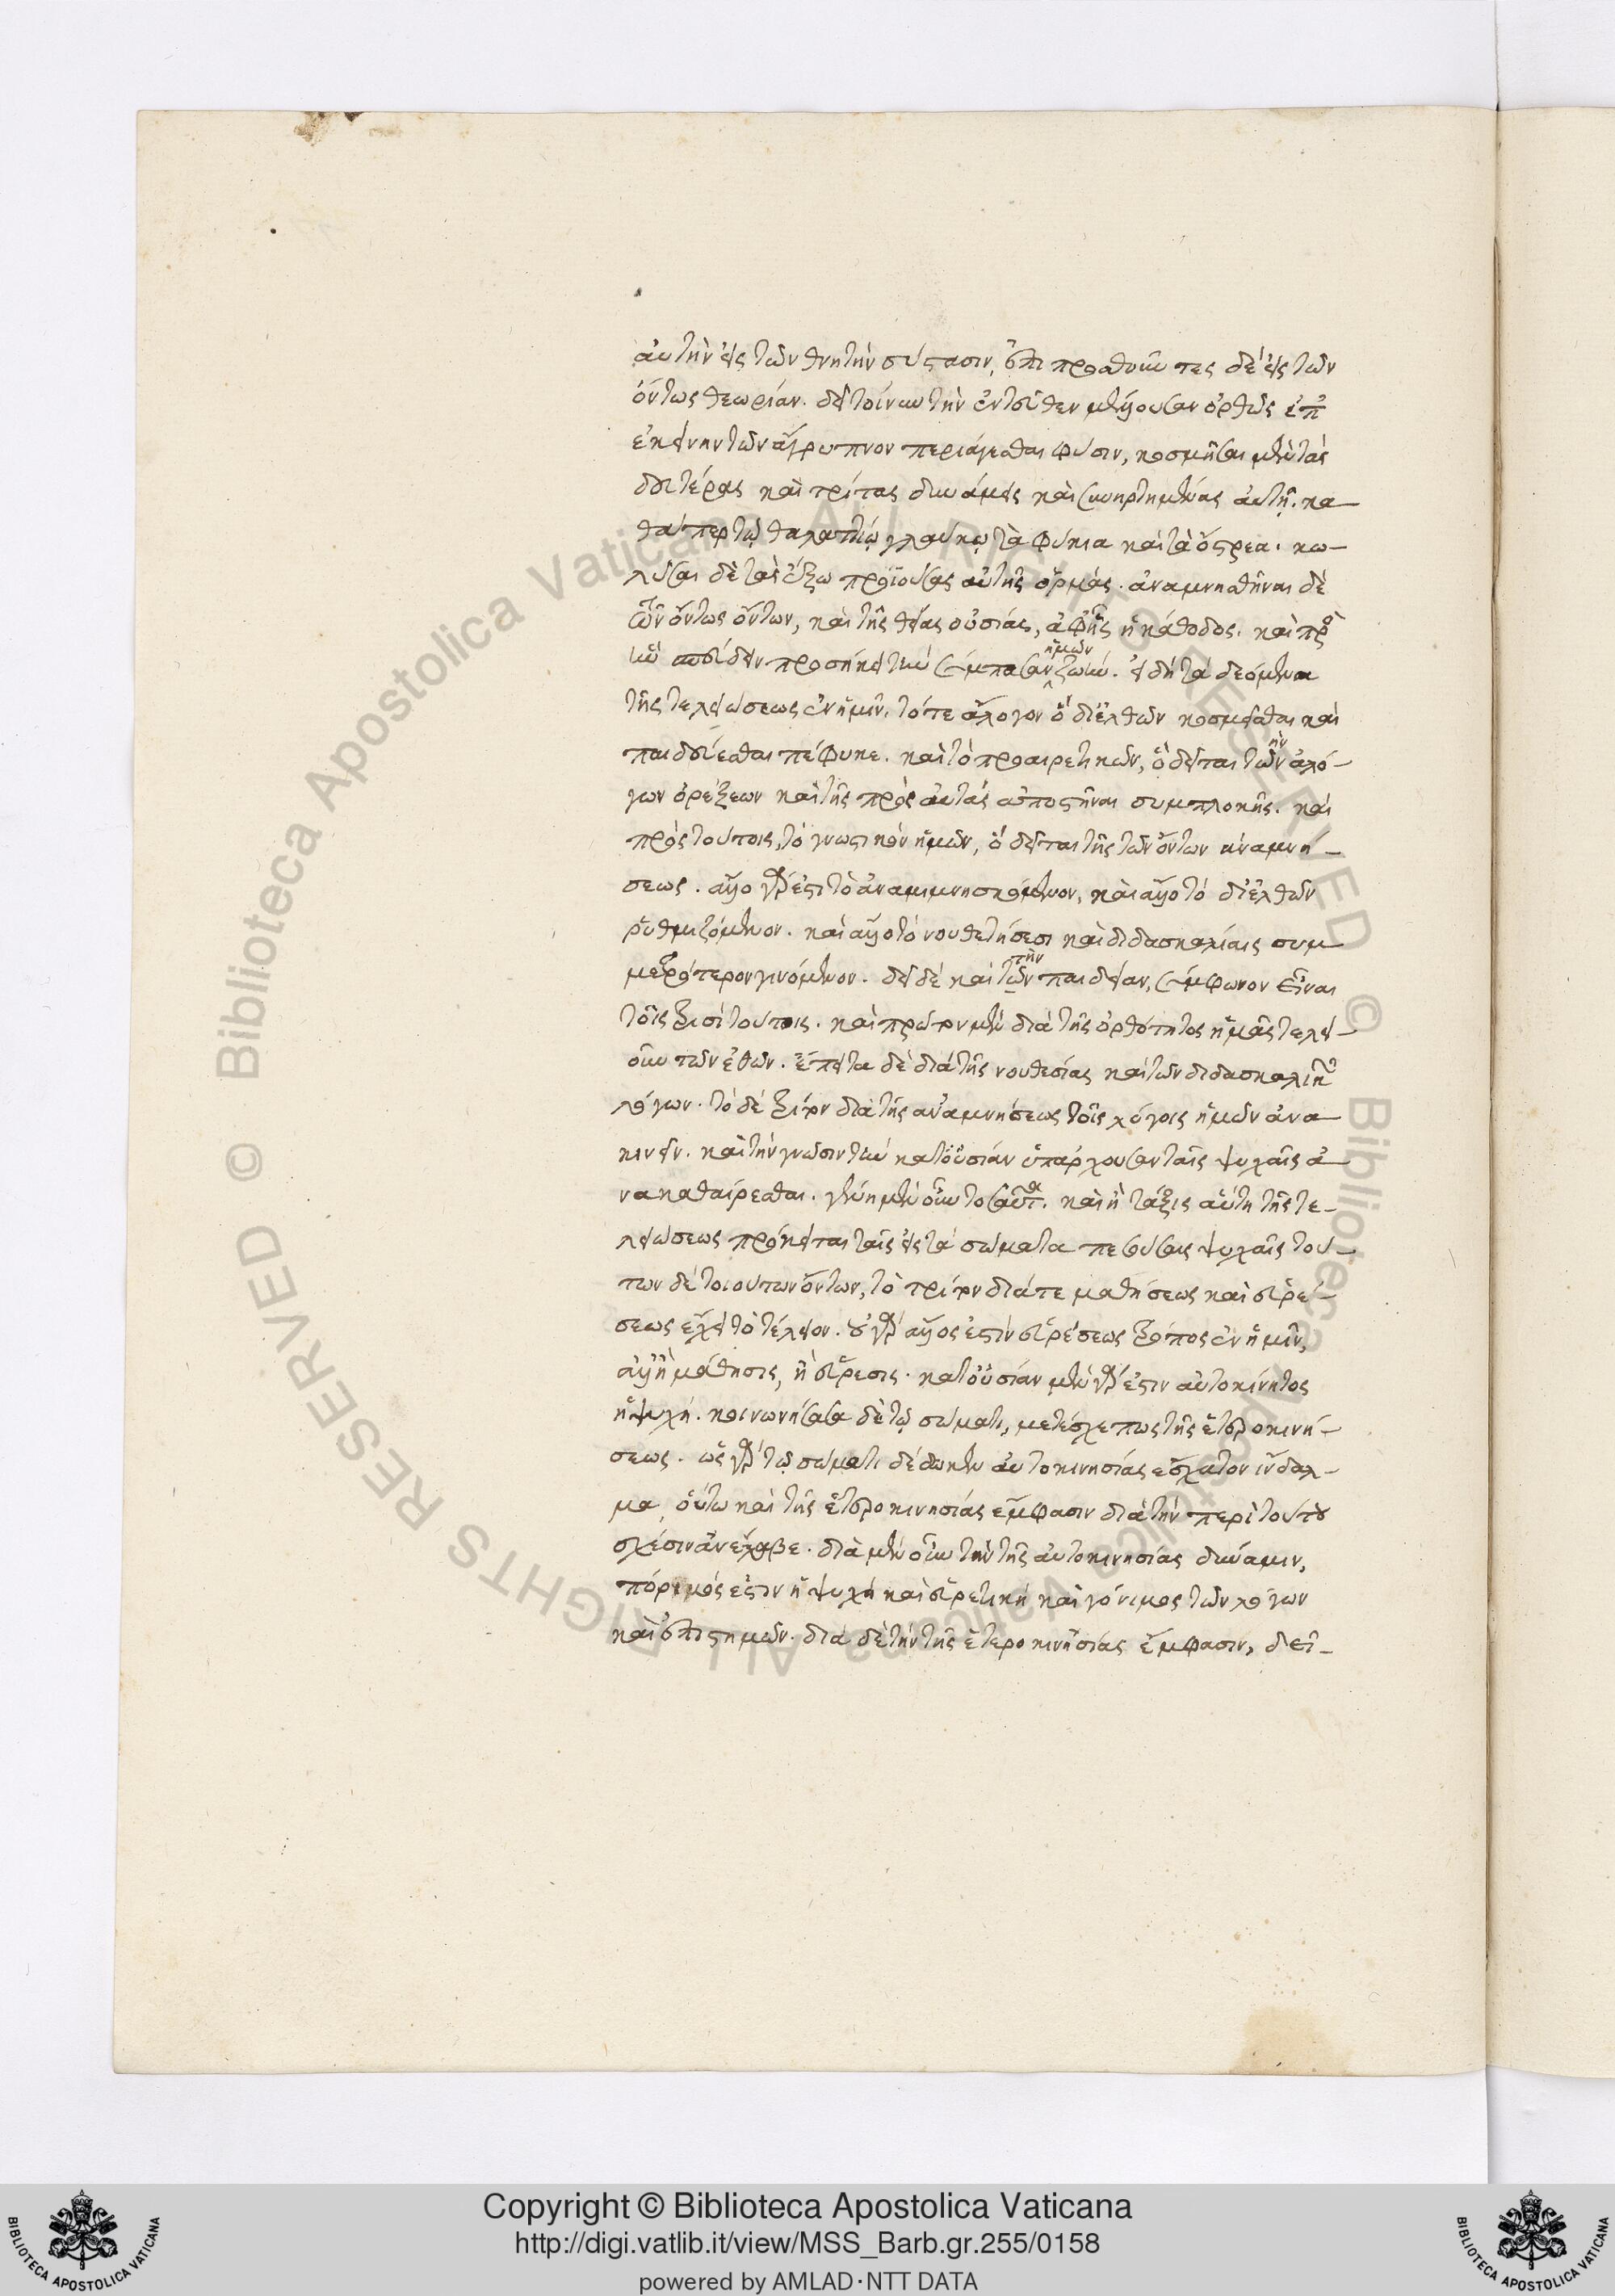 αὐτὴν εἰς τὴν θνητὴν σύστασιν, ἐπιπροσθοῦντες δὲ εἰς τὴν
ὄντως θεωρίαν. δεῖ τοίνυν τὴν ἐντεῦθεν μέλλουσαν ὀρθῶς ἐπ'
ἐκείνην τὴν ἄγρυπνον περιάγεσθαι φύσιν, κοσμῆσαι μὲν τὰς
δευτέρας καὶ τρίτας δυνάμεις καὶ συνηρτημένας αὐτῇ. κα—
θάπερ τῷ θαλαττίῳ γλαύκῳ τὰ φύκια καὶ τὰ ὄστρεα. κω—
λῦσαι δὲ τὰς ἔξω προϊούσας αὐτῆς ὁρμάς. ἀναμνησθῆναι δὲ
τῶν ὄντως ὄντων, καὶ τῆς θείας οὐσίας, ἀφ' ἧς ἡ κάθοδος. καὶ πρὸς
ἣν σπεύδειν προσήκει τὴν σύμπασαν ἡμῶν ζωήν. εἰ δὴ τὰ δεόμενα
τῆς τελειώσεως ἐν ἡμῖν, τό τε ἄλογον ὃ δι' ἐθῶν κοσμεῖσθαι καὶ
παιδεύεσθαι πέφυκε. καὶ τὸ προαιρετικὸν, ὃ δεῖται τὴν τῶν ἀλό—
γων ὀρέξεων καὶ τῆς πρὸς αὐτὰς ἀποστῆναι συμπλοκῆς. καὶ
πρὸς τούτοις, τὸ γνωστικὸν ἡμῶν, ὃ δεῖται τῆς τῶν ὄντων ἀναμνή—
σεως. ἄλλο γάρ ἐστι τὸ ἀναμιμνησκόμενον, καὶ ἄλλο τὸ δι' ἐθῶν
ῥυθμιζόμενον. καὶ ἄλλο τὸ νουθετήσεσι καὶ διδασκαλίαις συμ
μετρότερον γινόμενον. δεῖ δὲ καὶ τὴν παιδείαν, σύμφωνον εἶναι
τοῖς τρισὶ τούτοις. καὶ πρῶτον μὲν διὰ τῆς ὀρθότητος ἡμᾶς τελει—
οῦν τῶν ἐθῶν. ἔπειτα δὲ διὰ τῆς νουθεσίας καὶ τῶν διδασκαλικῶν
λόγων. τὸ δὲ τρίτον διὰ τῆς ἀναμνήσεως τοῖς λόγοις ἡμῶν ἀνα—
κινεῖν. καὶ τὴν γνῶσιν τὴν κατ' οὐσίαν ὑπάρχουσαν ταῖς ψυχαῖς ἀ—
νακαθαίρεσθαι. γένη μὲν οὖν τοσαῦτα. καὶ ἡ τάξις αὕτη τῆς τε—
λειώσεως πρόκειται ταῖς εἰς τὰ σώματα πεσούσαις ψυχαῖς. τού—
των δὲ τοιούτων ὄντων, τὸ τρίτον διά τε μαθήσεως καὶ εὑρέ—
σεως ἔχει τὸ τέλειον. οὐ γὰρ ἄλλος ἐστὶν εὑρέσεως τρόπος ἐν ἡμῖν,
ἀλλ' ἢ μάθησις, ἢ εὕρεσις. κατ' οὐσίαν μὲν γάρ ἐστιν αὐτοκίνητος
ἡ ψυχή. κοινωνήσασα δὲ τῷ σώματι, μετέσχε πως τῆς ἑτεροκινή—
σεως. ὡς γὰρ τῷ σώματι δέδωκεν αὐτοκινησίας ἔσχατον ἴνδαλ—
μα, οὕτω καὶ τῆς ἑτεροκινησίας ἔμφασιν διὰ τὴν περὶ τοῦτο
σχέσιν ἀνέλαβε. διὰ μὲν οὖν τὴν τῆς αὐτοκινησίας δύναμιν,
πόριμός ἐστιν ἡ ψυχὴ καὶ εὑρετικὴ καὶ γόνιμος τῶν λόγων
καὶ ἐπιστημῶν. διὰ δὲ τὴν τῆς ἑτεροκινησίας ἔμφασιν, δεῖ—
Copyright © Biblioteca Apostolica Vaticana
http://digi.vatlib.it/view/MSS_Barb.gr.255/0158
powered by AMLAD·NTT DATA
BIBLIOTECA APOSTOLICA VATICANA
BIBLIOTECA APOSTOLICA VATICANA
© Biblioteca Apostolica Vaticana ALL RIGHTS RESERVED
© Biblioteca Apostolica Vaticana ALL RIGHTS RESERVED